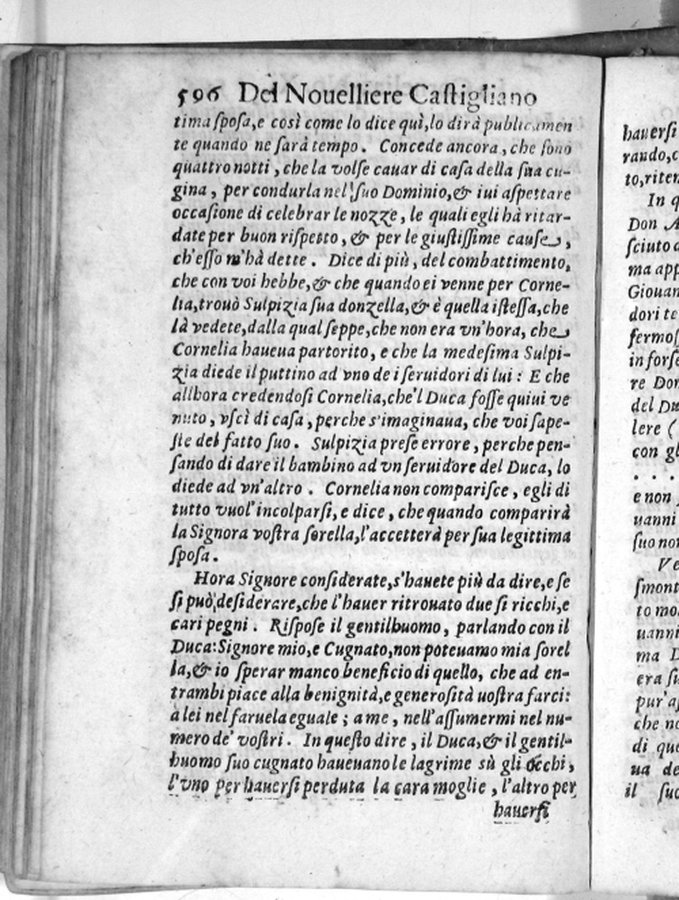 596 Del Nouelliere Castigliano
tima sposa, e così come lo dice quì, lo dirà publicamen
te quando ne sarà tempo. Concede ancora, che sono
quattro notti, che la volse cauar di casa della sua cu-
gina, per condurla nel suo Dominio, & iui aspettare
occasione di celebrar le nozze, le quali egli hà ritar-
date per buon rispetto, & per le giustissime cause,
ch'esso m'hà dette. Dice di più, del combattimento,
che con voi hebbe, & che quando ei venne per Corne-
lia, trouò Sulpizia sua donzella, & è quella istessa, che
là vedete, dalla qual seppe, che non era vn'hora, che
Cornelia haueua partorito, e che la medesima Sulpi-
zia diede il puttino ad vno de i seruidori di lui: E che
allhora credendosi Cornelia, che'l Duca fosse quiui ve
nuto, vscì di casa, perche s'imaginaua, che voi sape-
ste del fatto suo. Sulpizia prese errore, perche pen-
sando di dare il bambino ad vn seruidore del Duca, lo
diede ad vn'altro. Cornelia non comparisce, egli di
tutto vuol'incolparsi, e dice, che quando comparirà
la Signora vostra sorella, l'accetterà per sua legittima
sposa.
Hora Signore considerate, s'hauete più da dire, e se
si può desiderare, che l'hauer ritrouato due si ricchi, e
cari pegni. Rispose il gentilhuomo, parlando con il
Duca: Signore mio, e Cugnato, non poteuamo mia sorel
la, & io sperar manco beneficio di quello, che ad en-
trambi piace alla benignità, e generosità vostra farci:
à lei nel faruela eguale; a me, nell'assumermi nel nu-
mero de' vostri. In questo dire, il Duca, & il gentil-
huomo suo cugnato haueuano le lagrime sù gli occhi,
l'vno per hauersi perduta la cara moglie, l'altro per
hauersi
hauersi
to, riten
In q
Don A
sciuto a
ma app
Giouan
dori te
fermoss
in forse
re Don
del Du
lere (
con gl
. . . .
e non
uanni
suo non
Ve
smont
to mo
uanni
ma D
era su
pur'a
che no
di que
ua de
il suo